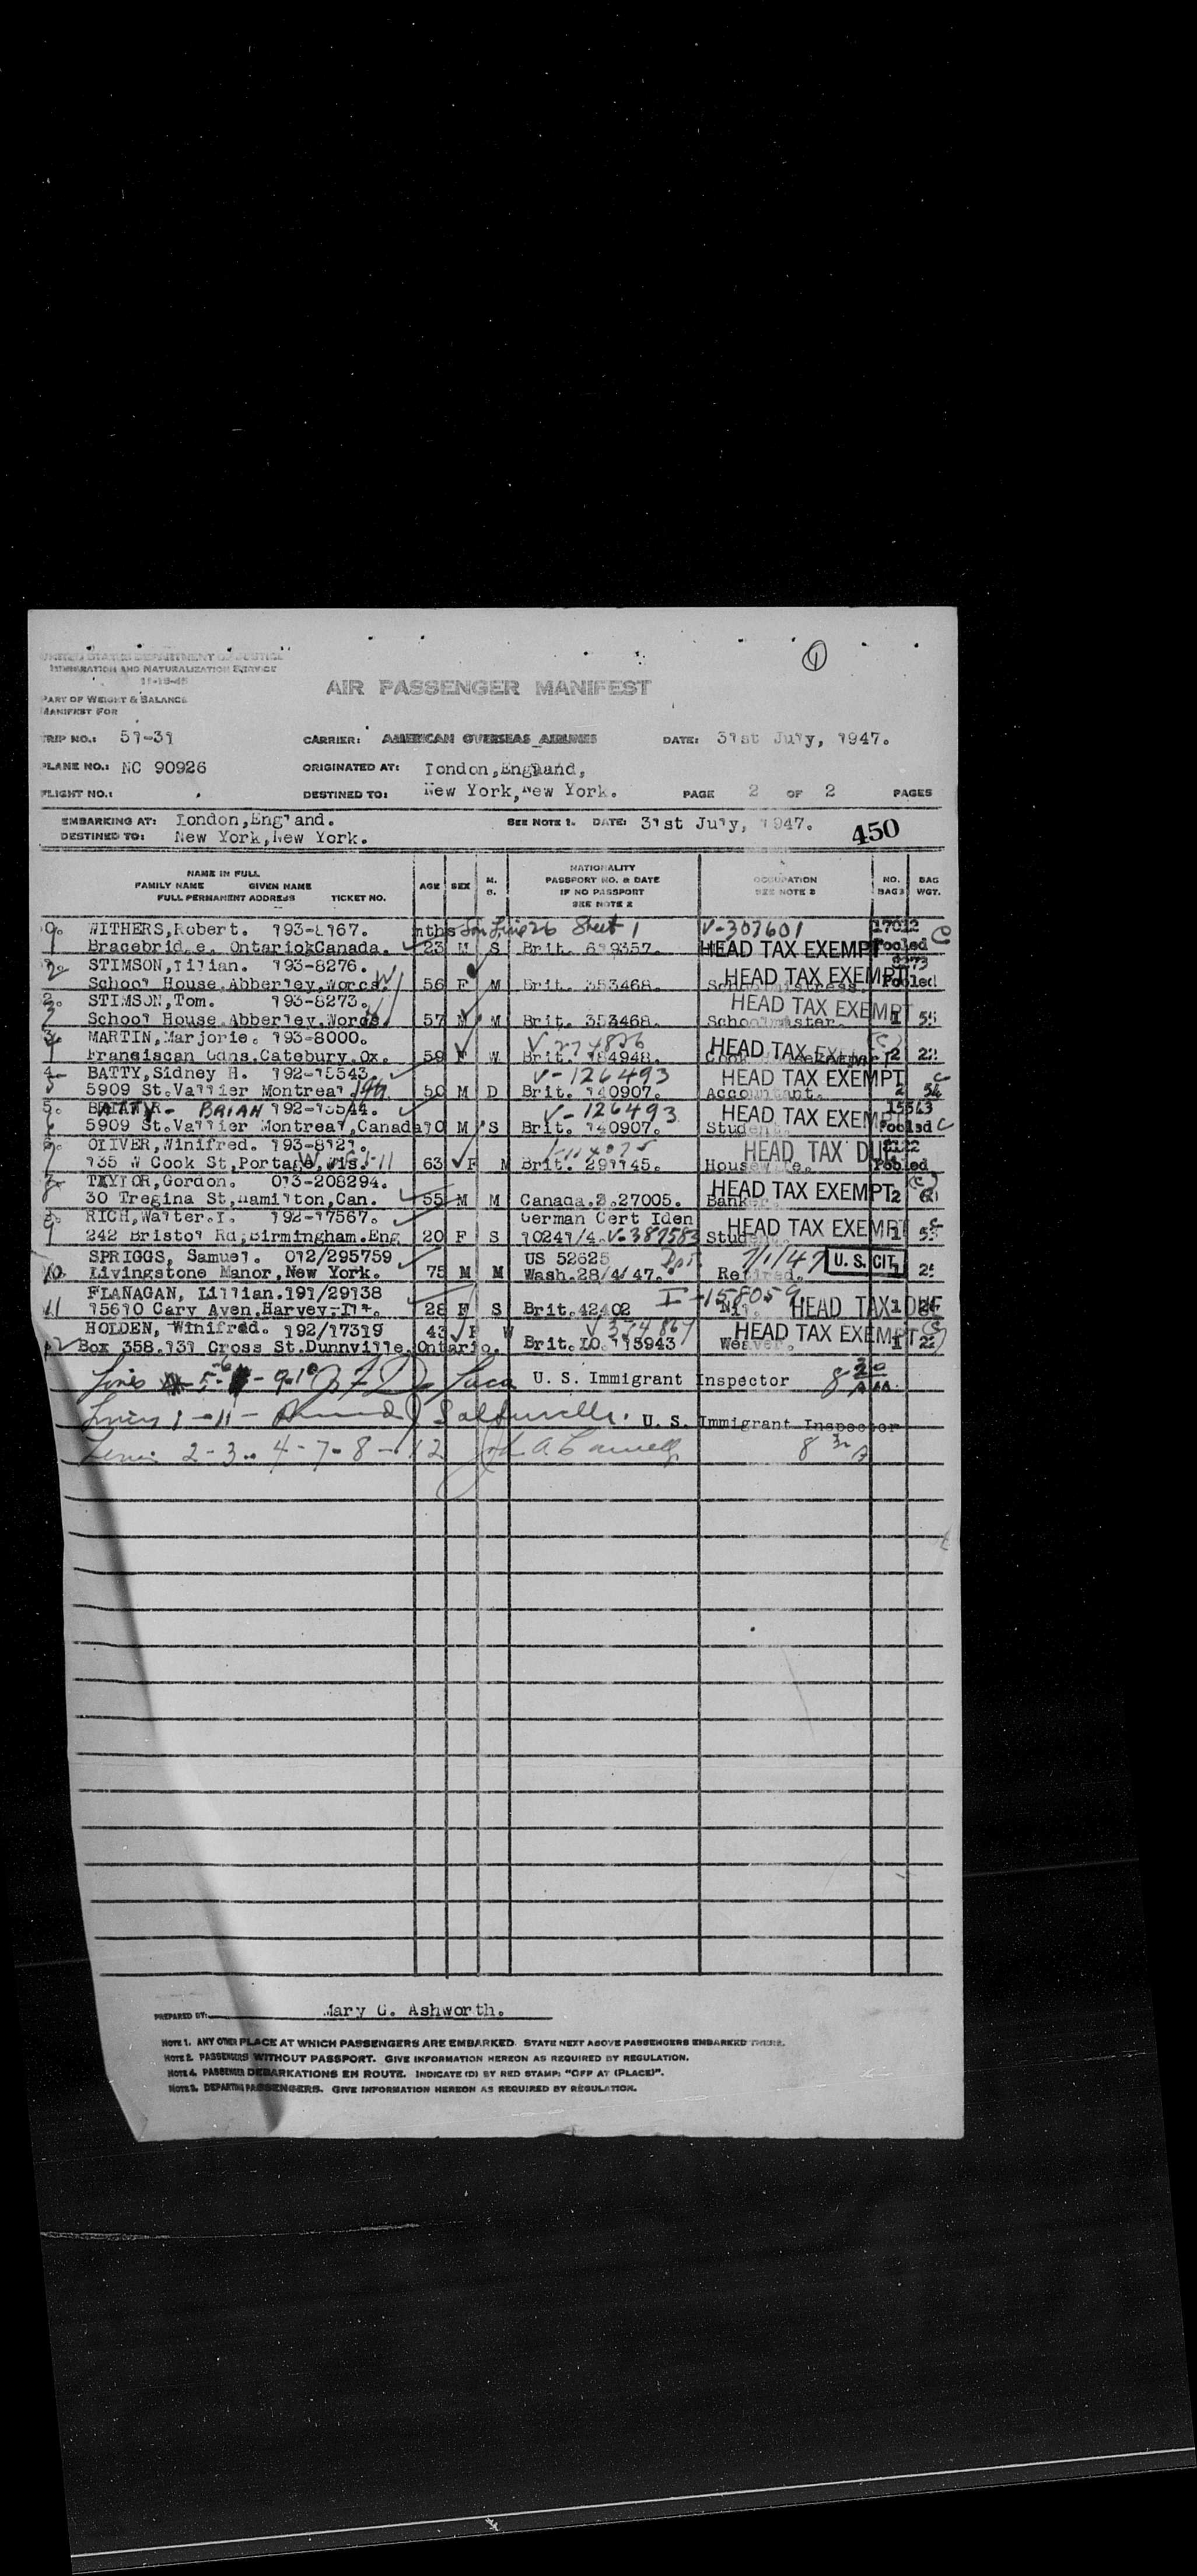 UNITED STATES DEPARTMENT OF JUSTICE
IMMIGRATION AND NATURALIZATION SERVICE
11-15-45
AIR PASSENGER MANIFEST
1
PART OF WEIGHT & BALANCE
MANIFEST FOR
TRIP NO.: 51-31 CARRIER: AMERICAN OVERSEAS AIRLINES DATE: 31st July, 1947.
PLANE NO.: NC 90926 ORIGINATED AT: London,England,
FLIGHT NO.: DESTINED TO: New York,New York. PAGE 2 OF 2 PAGES
EMBARKING AT: London,England. SEE NOTE 1. DATE: 31st July, 1947.
DESTINED TO: New York,New York. 450
NAME IN FULL
FAMILY NAME GIVEN NAME
FULL PERMANENT ADDRESS TICKET NO.
AGE SEX M. S.
NATIONALITY
PASSPORT NO. & DATE
IF NO PASSPORT
SEE NOTE 2
OCCUPATION
SEE NOTE 3
NO. BAGS BAG WGT.
WITHERS,Robert. 193-8167. mths Son Line 26 Sheet 1 V-307601 17012
1 Bracebridge. Ontario Canada. 23 M S Brit. 619357. HEAD TAX EXEMPT Pooled C
STIMSON,Lilian. 193-8276. HEAD TAX EXEMPT
2 School House.Abberley.Worcs. 56 F M Brit. 353468. Schoolmistress. Pooled
STIMSON,Tom. 193-8273. HEAD TAX EXEMPT
3 School House.Abberley.Worcs. 57 M M Brit. 353468. Schoolmaster.
MARTIN,Marjorie. 193-8000. V-274826 HEAD TAX EXEMPT (C)
4 Franciscan Gdns.Catebury.Ox. 59 F W Brit. 184948. 2 22
BATTY,Sidney H. 192-15543. V-126493 HEAD TAX EXEMPT C
5 5909 St.Vallier Montreal 50 M D Brit. 140907. Accountant. 2 54
BATTY BRIAN 192-15544. V-126493 HEAD TAX EXEMPT 15543
6 5909 St.Vallier Montreal,Canada 10 M S Brit. 140907. Student. Pooled C
OLIVER,Winifred. 193-8121. HEAD TAX DUE
7 135 W Cook St,Portage,Wis. 63 F M Brit. 291145. Housewife. Pooled
TAYLOR,Gordon. 013-208294. HEAD TAX EXEMPT (C)
8 30 Tregina St,Hamilton,Can. 55 M M Canada.2.27005. Banker. 2
RICH,Walter.I. 192-17567. German Cert Iden HEAD TAX EXEMPT C
9 242 Bristol Rd,Birmingham.Eng 20 F S 10241/4. V-387583 Student. 1
SPRIGGS, Samuel. 012/295759 US 52625 7/1/47 U. S. CIT.
10 Livingstone Manor,New York. 75 M M Wash.28/4/47. Retired.
FLANAGAN, Lillian.191/29138 I-158059
11 15610 Cary Aven.Harvey-Ill. 28 F S Brit.42402 Nil. HEAD TAX DUE
HOLDEN, Winifred. 192/17319 43 F W V 374867 HEAD TAX EXEMPT
12 Box 358.131 Cross St.Dunnville.Ontario. Brit.LO.113943 Weaver. 1 22
Lines 5-6-9-10 U. S. Immigrant Inspector 8 30 AM
Lines 1-11- U. S. Immigrant Inspector
Lines 2-3-4-7-8-12 8 30 A
PREPARED BY: Mary G. Ashworth.
NOTE 1. ANY OTHER PLACE AT WHICH PASSENGERS ARE EMBARKED. STATE NEXT ABOVE PASSENGERS EMBARKED THERE.
NOTE 2. PASSENGERS WITHOUT PASSPORT. GIVE INFORMATION HEREON AS REQUIRED BY REGULATION.
NOTE 4. PASSENGER DEBARKATIONS EN ROUTE. INDICATE (D) BY RED STAMP: "OFF AT (PLACE)".
NOTE 3. DEPARTING PASSENGERS. GIVE INFORMATION HEREON AS REQUIRED BY REGULATION.